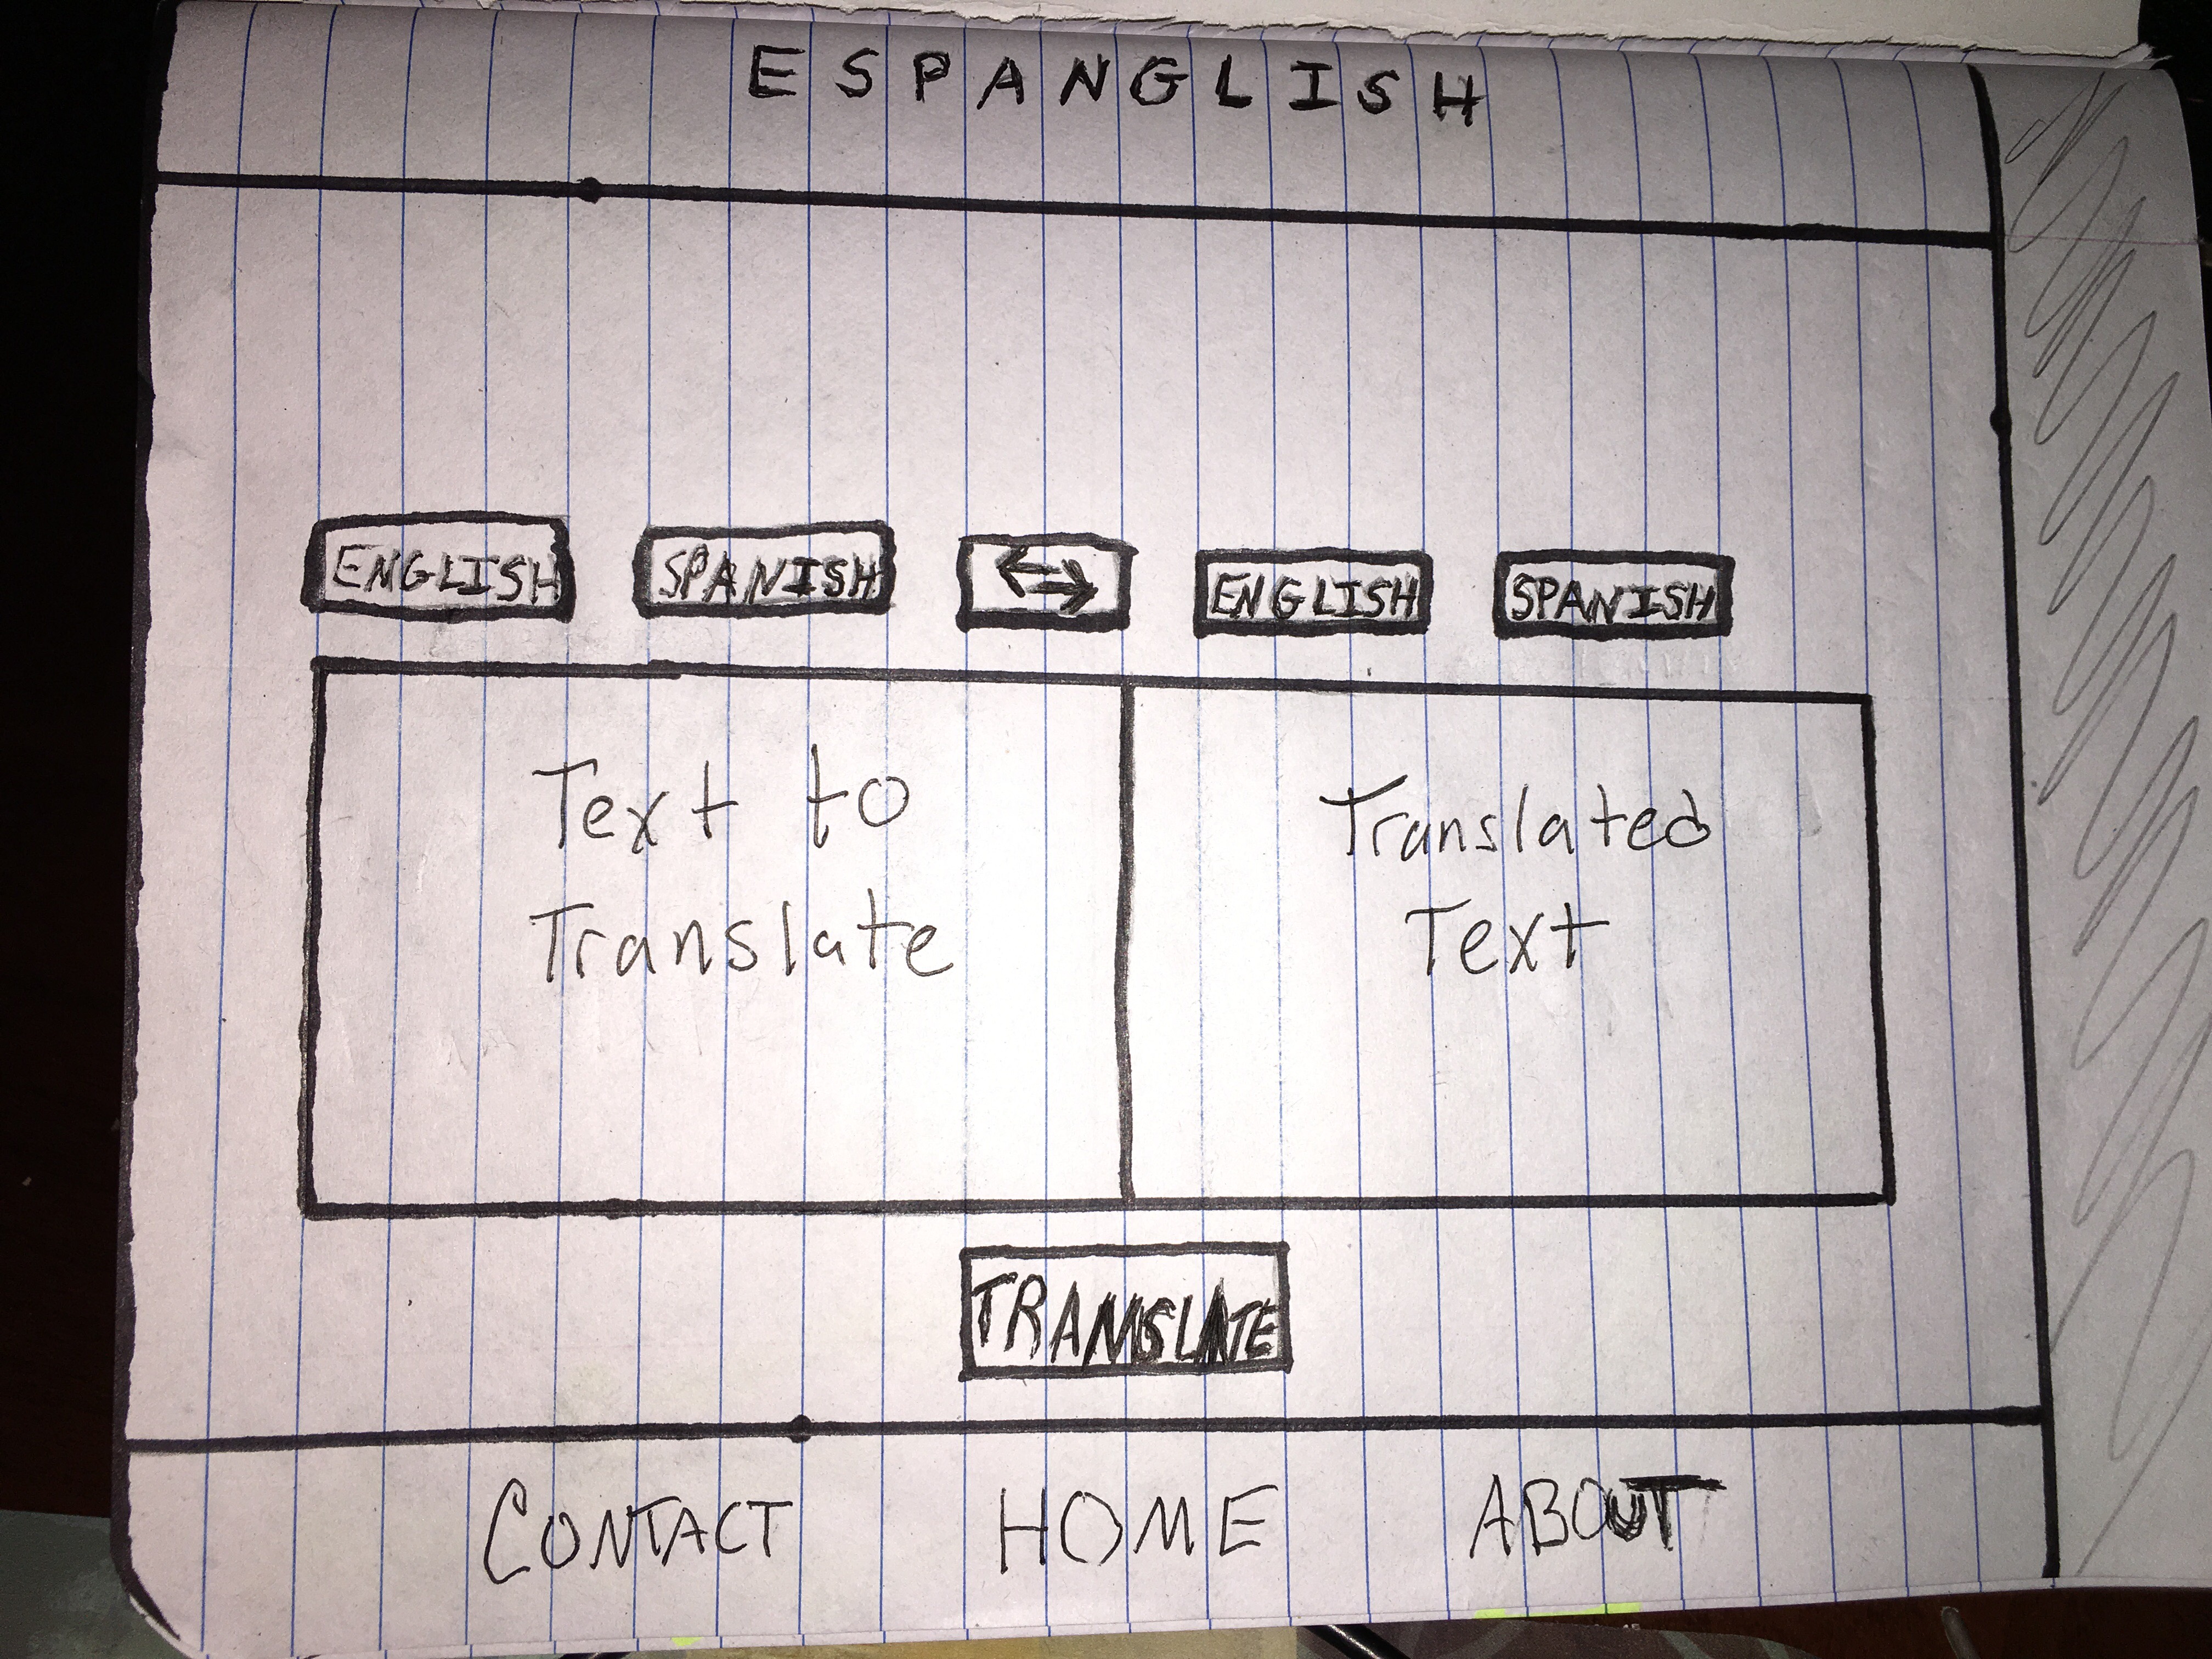 ESPANGLISH
ENGLISH SPANISH ENGLISH SPANISH
Text to Translated
Translate Text
TRANSLATE
CONTACT HOME ABOUT